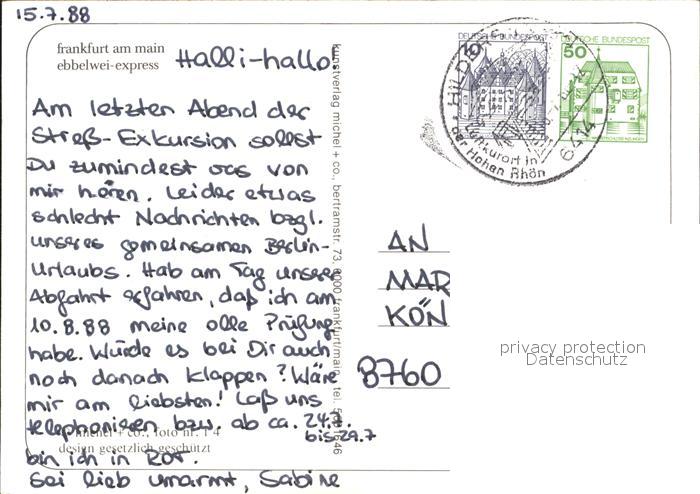 15.7.88
frankfurt am main
ebbelwei-express
Halli-hallo!
Am letzten Abend der
Streß-Exkursion sollst
Du zumindest was von
mir hören. Leider etwas
schlecht Nachrichten bzgl.
unseres gemeinsamen Berlin-
Urlaubs. Hab am Tag unserer
Abfahrt erfahren, daß ich am
10.8.88 meine olle Prüfung
habe. Würde es bei Dir auch
noch danach klappen? Wäre
mir am liebsten! Laß uns
telephonieren bzw. ab ca. 24.7.
bis 29.7
bin ich in ROT.
Sei lieb umarmt, Sabine
michel + co., foto nr. 14
design gesetzlich geschützt
kunstverlag michel + co., bertramstr. 73, 6000 frankfurt/main, tel.
DEUTSCHE BUNDESPOST
10
DEUTSCHE BUNDESPOST
50
Luftkurort in
der Hohen Rhön
6414
AN
MAR
KÖN
8760
privacy protection
Datenschutz